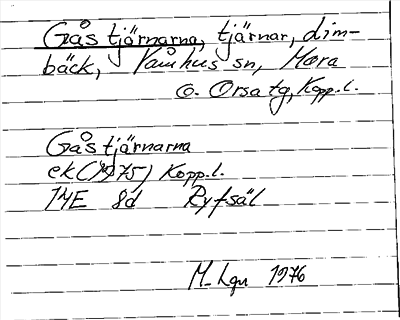 Gåstjärnarna, tjärnar, dim-
bäck, Våmhus sn, Mora
o. Orsa tg, Kopp. l.
Gåstjärnarna
ek (1975) Kopp. l.
14E 8d Ryfsäl
M. Lgn 1976